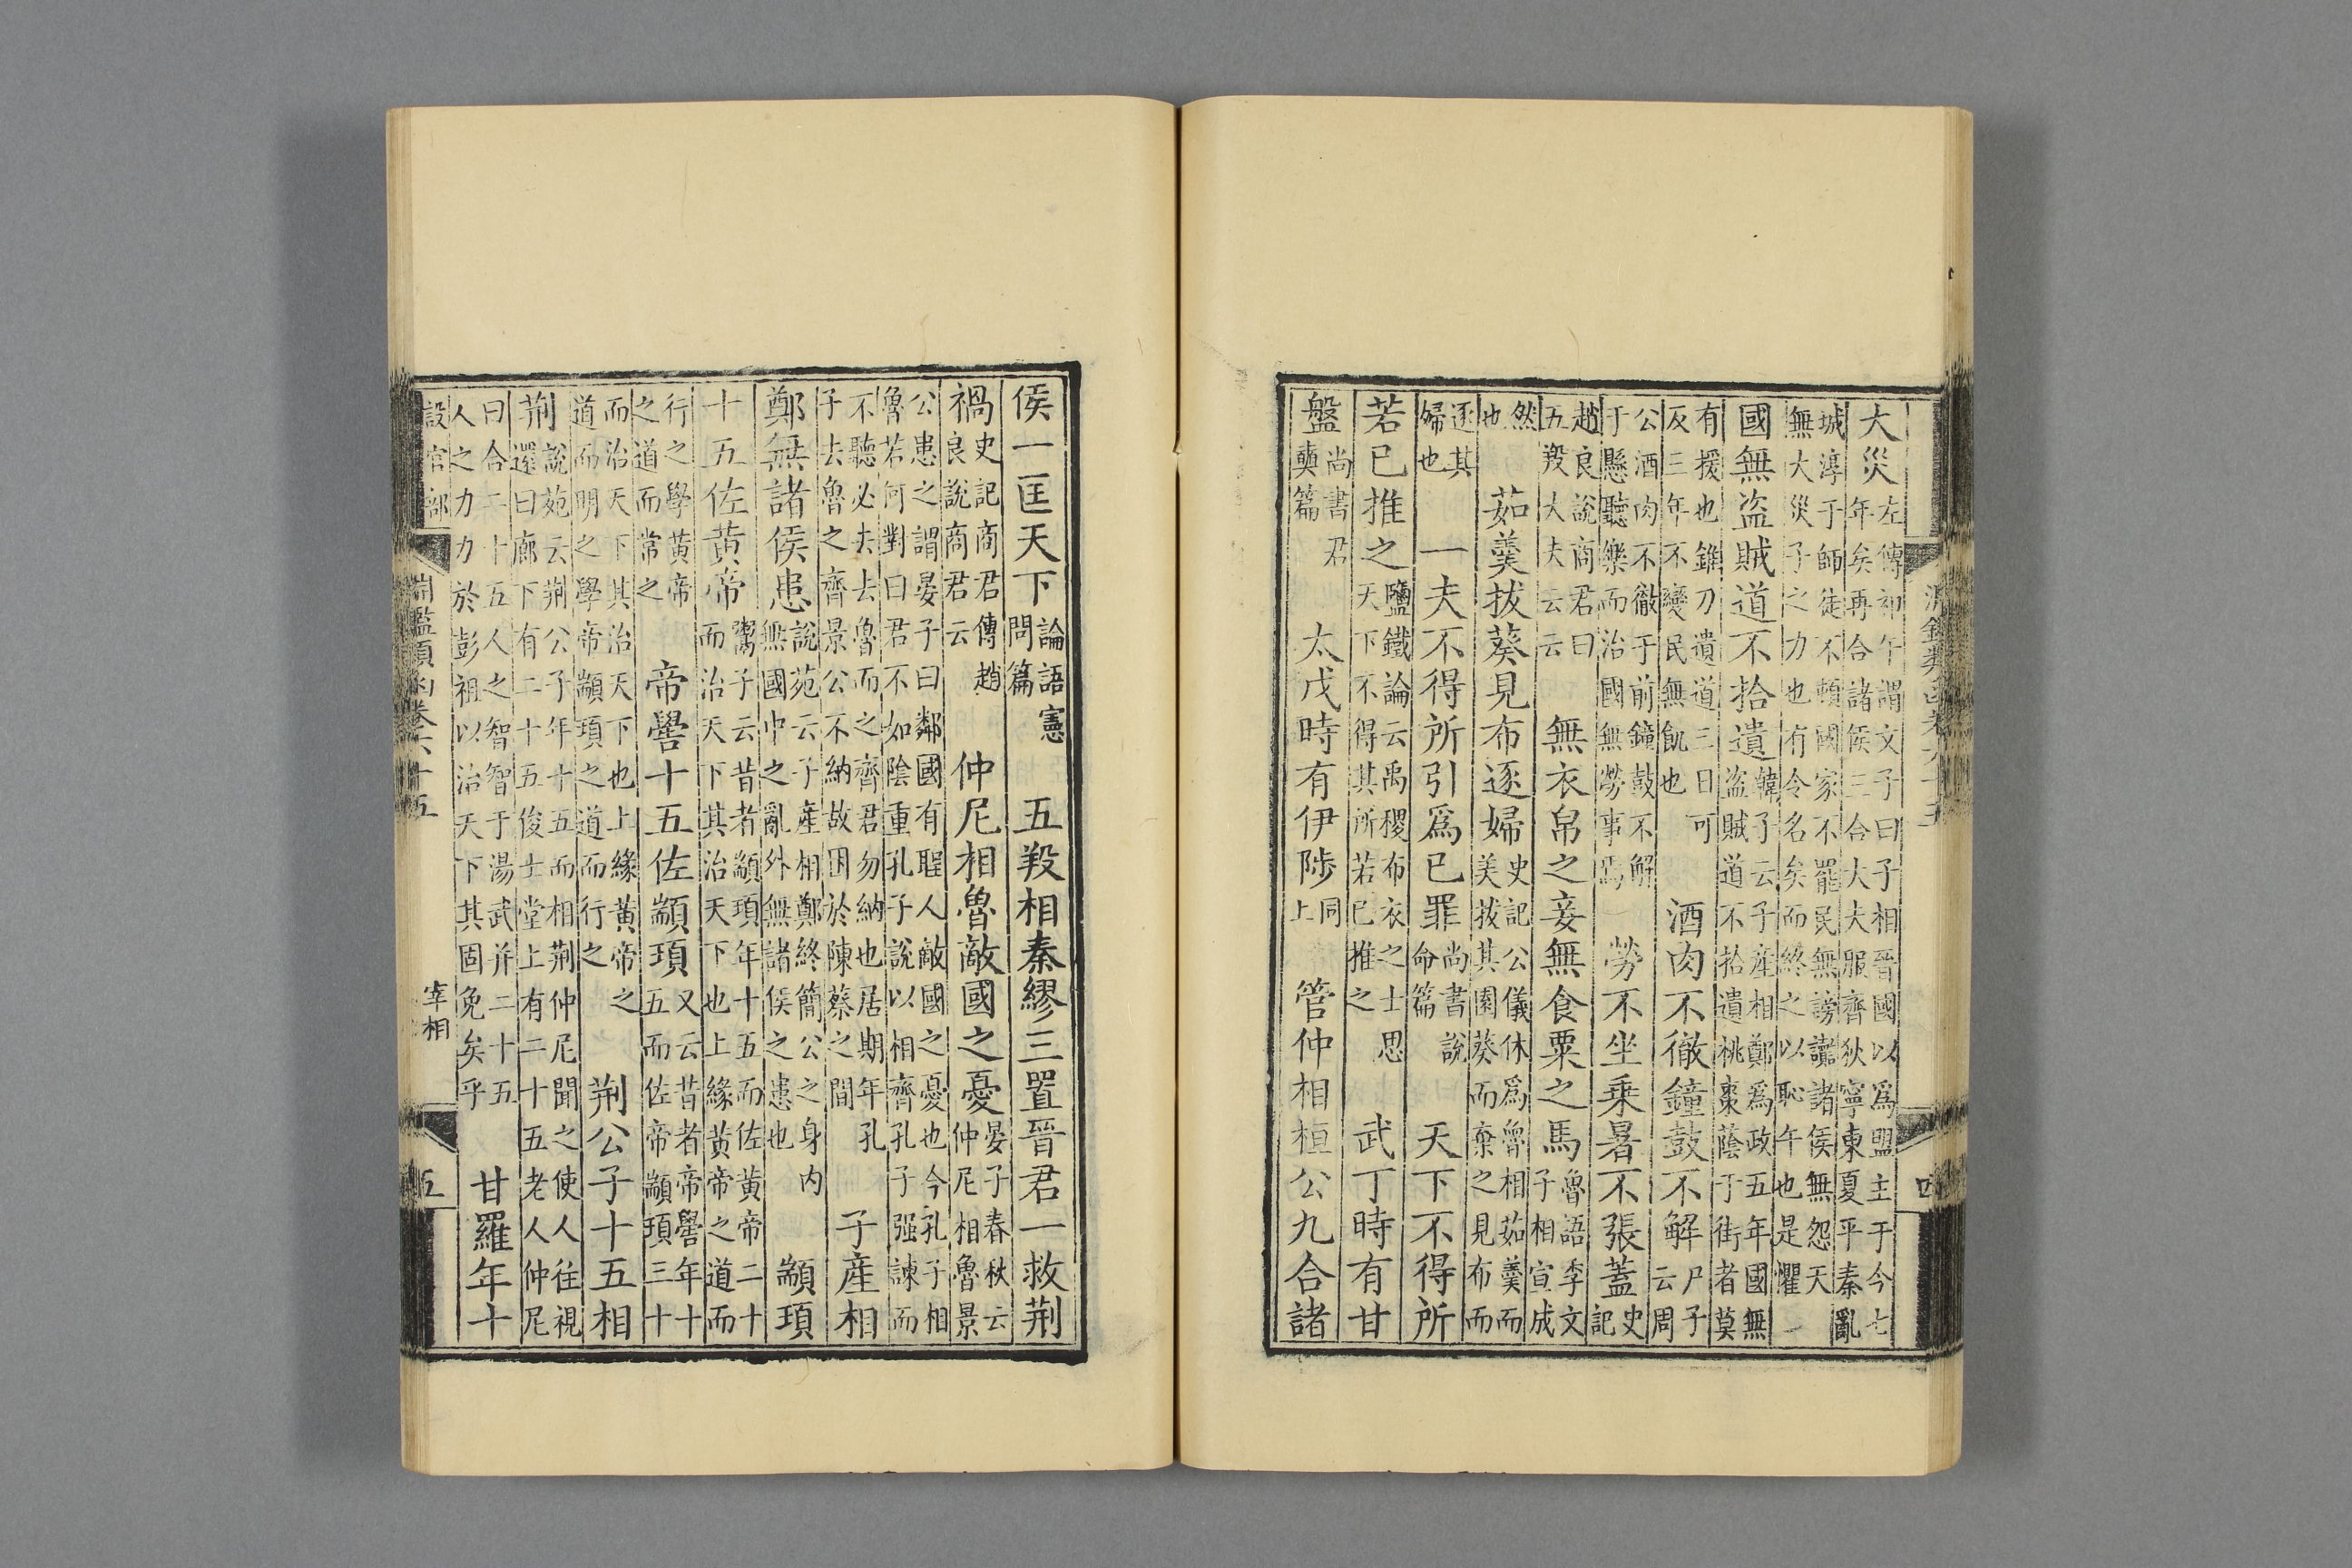 大災左傳初午謂文子曰子相晉國以爲盟主于今七
年矣再合諸侯三合大大服齊狄寧東夏平秦亂
城淳于師徒不頓國家不罷民無謗讟諸侯無怨天
無大災子之力也有令名矣而終之以恥午也是懼
國無盜賊道不拾遺韓子云子產相鄭爲政五年國無
盜賊道不拾遺桃棗蔭于街者莫
有援也錐刀遺道三日可
反三年不變民無飢也酒肉不徹鐘鼓不解尸子
云周
公酒肉不徹于前鐘鼓不解
于懸聽樂而治國無勞事焉勞不坐乘暑不張蓋史
記
趙良說商君曰
五羖大夫云云無衣帛之妾無食粟之馬魯語季文
子相宣成
然
也茹羹拔葵見布逐婦史記公儀休爲魯相茹羹而
美拔其園葵而棄之見布而
逐其
婦也一夫不得所引爲已罪尚書說
命篇天下不得所
若已推之鹽鐵論云禹稷布衣之士思
天下不得其所若已推之武丁時有甘
盤尚書君
奭篇太戊時有伊陟同
上管仲相桓公九合諸
四
侯一匡天下論語憲
問篇五羖相秦繆三置晉君一救荆
禍史記商君傳趙
良說商君云仲尼相魯敵國之憂晏子春秋云
仲尼相魯景
公患之謂晏子曰鄰國有聖人敵國之憂也今孔子相
魯若何對曰君不如陰重孔子說以相齊孔子强諫而
不聽必去去魯而之齊君勿納也居期年孔
子去魯之齊景公不納故困於陳蔡之間子產相
鄭無諸侯患說苑云子產相鄭終簡公之身内
無國中之亂外無諸侯之患也顓頊
十五佐黃帝鬻子云昔者顓頊年十五而佐黃帝二十
而治天下其治天下也上緣黃帝之道而
行之學黃帝
之道而常之帝嚳十五佐顓頊又云昔者帝嚳年十
五而佐帝顓頊三十
而治天下其治天下也上緣黃帝之
道而明之學帝顓頊之道而行之荆公子十五相
荆說苑云荆公子年十五而相荆仲尼聞之使人往視
還曰廊下有二十五俊士堂上有二十五老人仲尼
曰合二十五人之智智于湯武并二十五
人之力力於彭祖以治天下其固免矣乎甘羅年十
設官部
淵鑑類函卷六十五
宰相
五